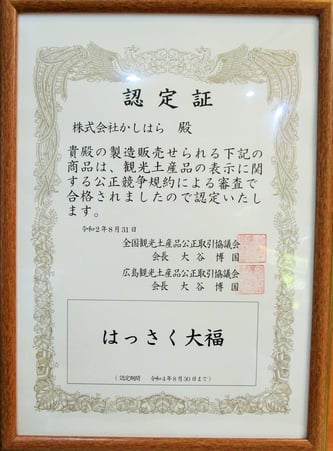 認定証
株式会社かしはら 殿
貴殿の製造販売せられる下記の
商品は、観光土産品の表示に関
する公正競争規約による審査で
合格されましたので認定いたし
ます。
令和2年8月31日
全国観光土産品公正取引協議会
会長 大谷博国
広島観光土産品公正取引協議会
会長 大谷博国
はっさく大福
(認定期間 令和4年8月30日まで)